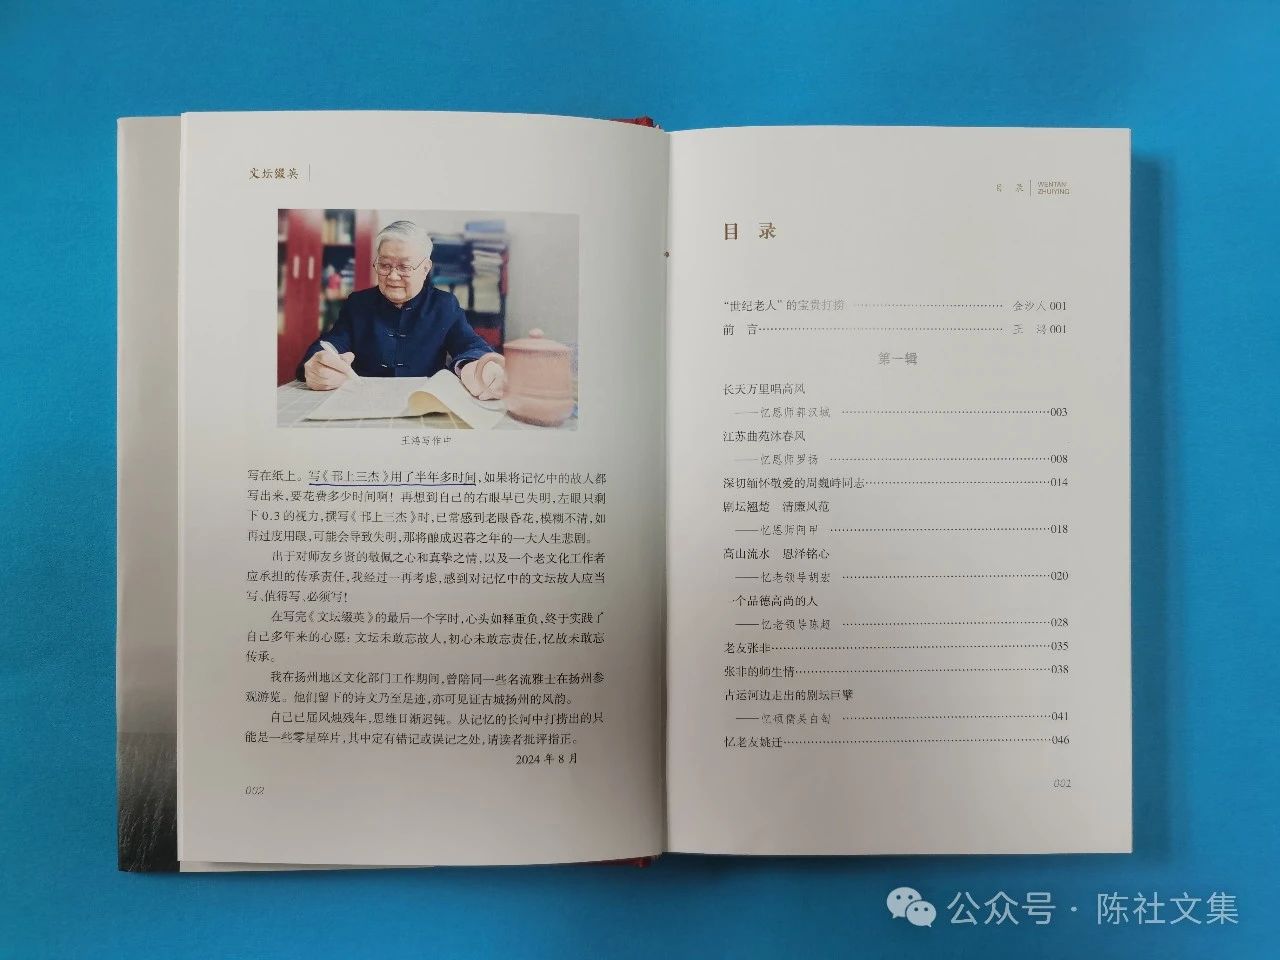 文坛缀英
王鸿写作中
写在纸上。写《邗上三杰》用了半年多时间,如果将记忆中的故人都
写出来,要花费多少时间啊!再想到自己的右眼早已失明,左眼只剩
下0.3的视力,撰写《邗上三杰》时,已常感到老眼昏花,模糊不清,如
再过度用眼,可能会导致失明,那将酿成迟暮之年的一大人生悲剧。
出于对师友乡贤的敬佩之心和真挚之情,以及一个老文化工作者
应承担的传承责任,我经过一再考虑,感到对记忆中的文坛故人应当
写、值得写、必须写!
在写完《文坛缀英》的最后一个字时,心头如释重负,终于实践了
自己多年来的心愿:文坛未敢忘故人,初心未敢忘责任,忆故未敢忘
传承。
我在扬州地区文化部门工作期间,曾陪同一些名流雅士在扬州参
观游览。他们留下的诗文乃至足迹,亦可见证古城扬州的风韵。
自己已届风烛残年,思维日渐迟钝。从记忆的长河中打捞出的只
能是一些零星碎片,其中定有错记或误记之处,请读者批评指正。
2024年8月
002
目 录 WENTAN
ZHUIYING
目 录
“世纪老人”的宝贵打捞 …… 金沙人 001
前 言 …… 王 鸿 001
第一辑
长天万里唱高风
——忆恩师郭汉城 …… 003
江苏曲苑沐春风
——忆恩师罗扬 …… 008
深切缅怀敬爱的周巍峙同志 …… 014
剧坛翘楚 清廉风范
——忆恩师阿甲 …… 018
高山流水 恩泽铭心
——忆老领导胡宏 …… 020
一个品德高尚的人
——忆老领导陈超 …… 028
老友张非 …… 035
张非的师生情 …… 038
古运河边走出的剧坛巨擘
——忆硕儒吴白匋 …… 041
忆老友姚迁 …… 046
001
公众号·陈社文集